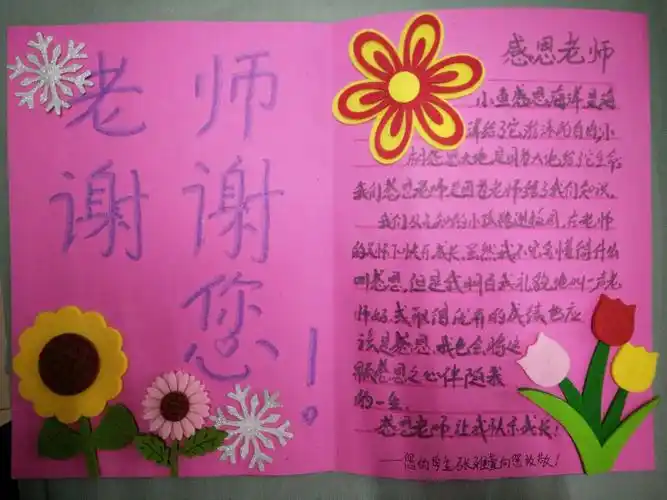 老师
谢谢
您!
感恩老师
小鱼感恩海洋是海
洋给了它游泳的自由,小
树感恩大地是因为大地给它生命
我们感恩老师是因为老师给了我们知识。
我们从无知的小孩踏进校园,在老师
的关怀下快乐成长,虽然我不完全懂得什么
叫感恩,但是我明白我礼貌地叫一声老
师好,或取得优异的成绩也应
该是感恩,我也会将这
颗感恩之心伴随我
的一生。
感恩老师,让我快乐成长!
——您的学生张雅萱向您致敬!